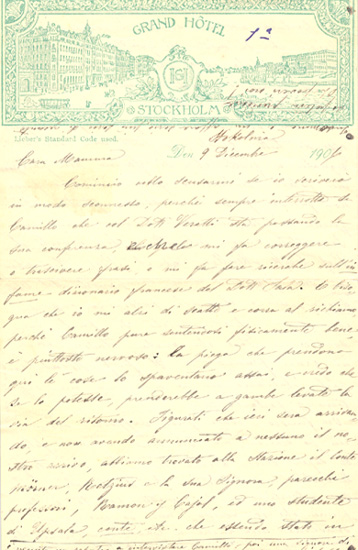 GRAND HÔTEL
STOCKHOLM
1ª
Lieber's Standard Code used.
Stokolma
Den 9 Dicembre 190
Cara Mamma
Comincio collo scusarmi se io scriverò
in modo sconnesso, perchè sempre interrotta da
Camillo che col Dott. Veratti sta passando la
sua conferenza, mi fa correggere
o riscrivere frasi e mi fa fare ricerche sull'in
fame dizionario francese del Dott. Biso
gna che io mi alzi di scatto e corra al richiamo
perchè Camillo pure sentendosi fisicamente bene
è piuttosto nervoso: la piega che prendono
qui le cose lo spaventano assai, e credo che
se lo potesse, prenderebbe a gambe levate la
via del ritorno. Figurati che ieri sera arrivan
do, e non avendo annunciato a nessuno il no
stro arrivo, abbiamo trovato alla Stazione il Conte
Mörner, Retzius e la Sua Signora, parecchi
professori, Ramon y Cajal, ed uno studente
d'Upsala che essendo stato in